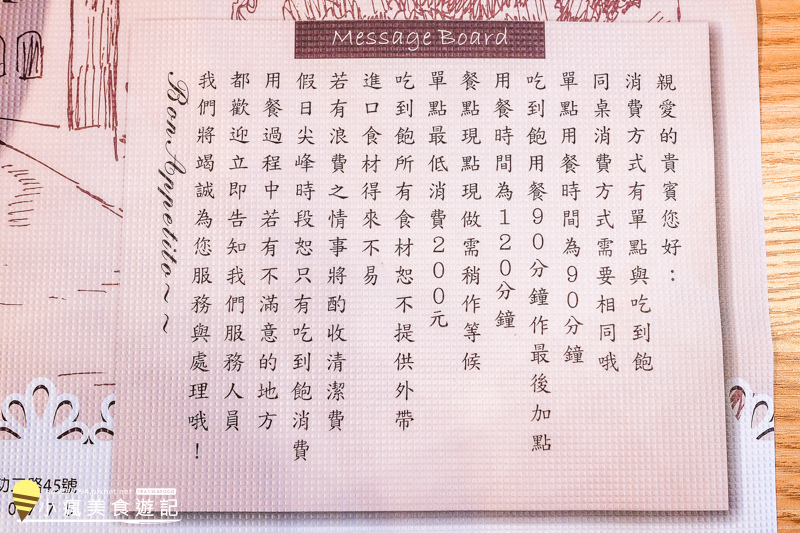 Message Board
親愛的貴賓您好：
消費方式有單點與吃到飽
同桌消費方式需要相同哦
單點用餐時間為90分鐘
吃到飽用餐90分鐘作最後加點
用餐時間為120分鐘
餐點現點現做需稍作等候
單點最低消費200元
吃到飽所有食材恕不提供外帶
進口食材得來不易
若有浪費之情事將酌收清潔費
假日尖峰時段恕只有吃到飽消費
用餐過程中若有不滿意的地方
都歡迎立即告知我們服務人員
我們將竭誠為您服務與處理哦！
Bon Appetito~~
路45號
瘋美食遊記